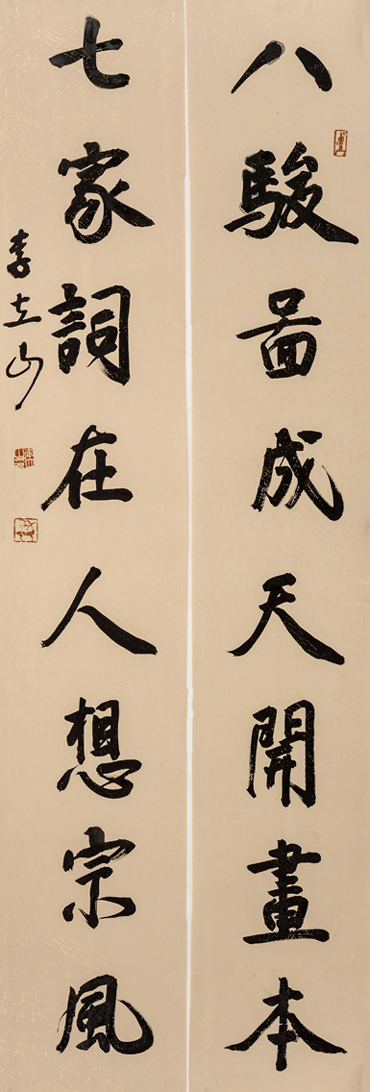 八駿啚成天開畫本
七家詞在人想宗風
李立山